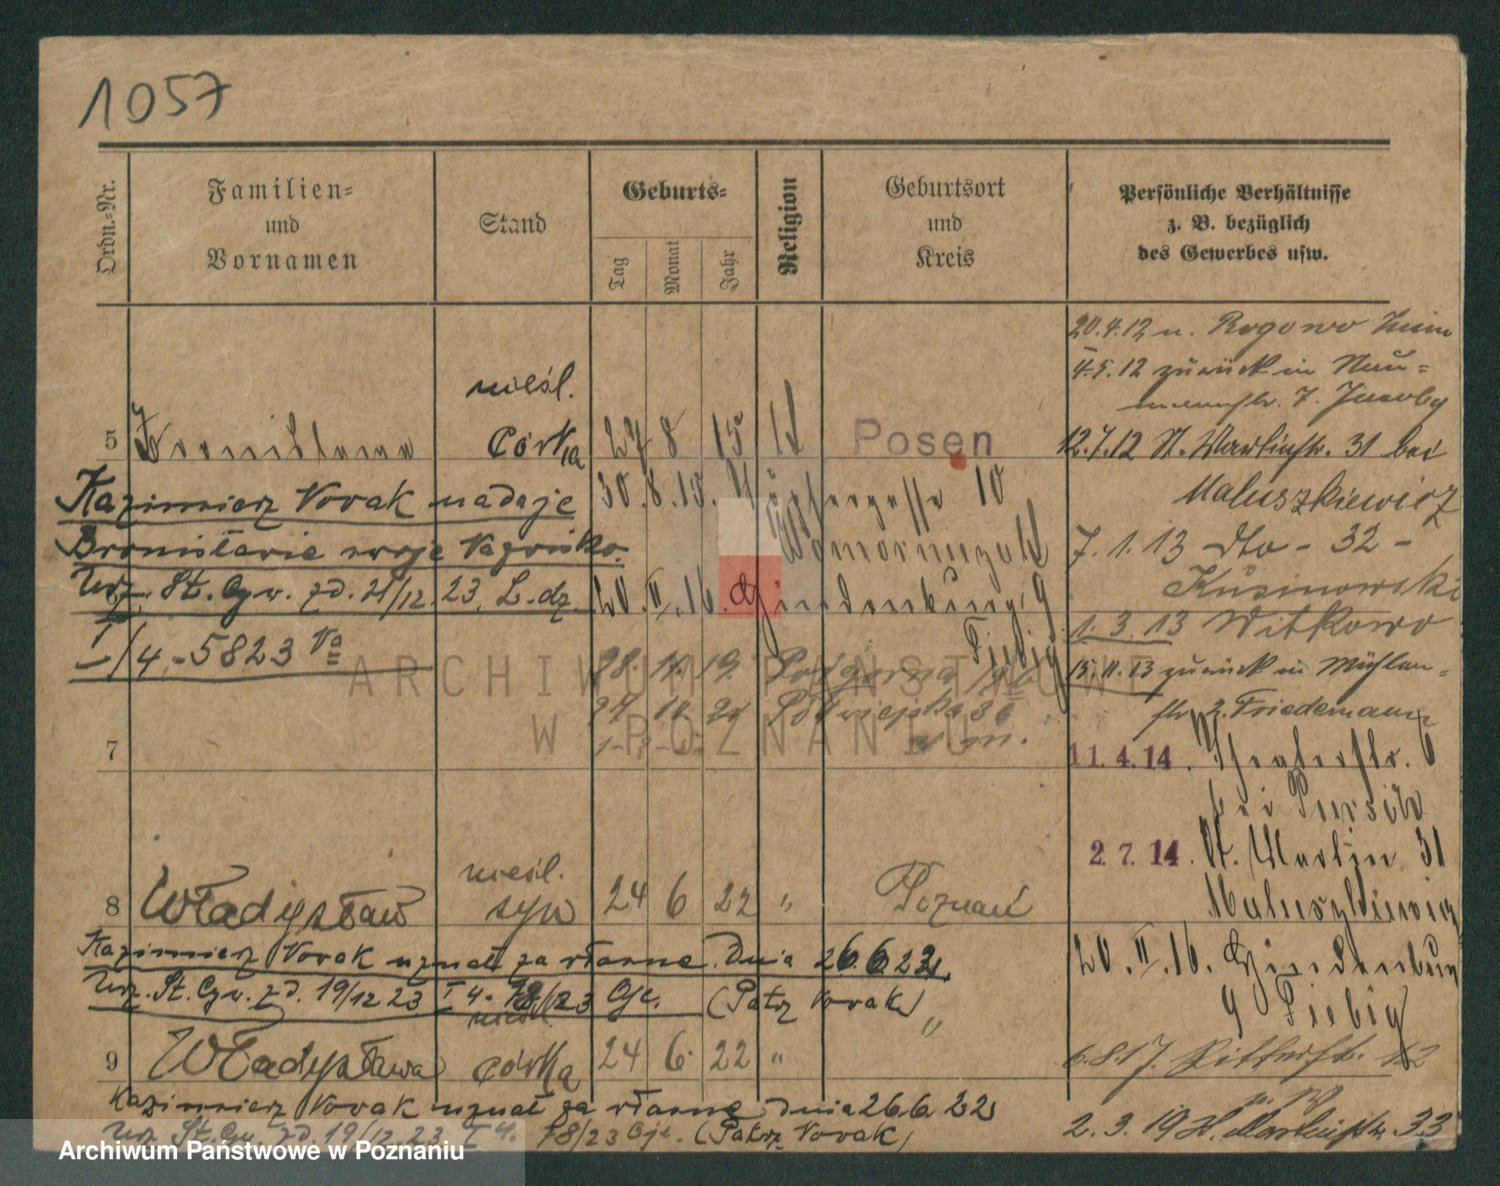 1057
Ordn.=Nr.
Familien=
und
Vornamen
Stand
Geburts=
Tag
Monat
Jahr
Religion
Geburtsort
und
Kreis
Persönliche Verhältnisse
z. B. bezüglich
des Gewerbes usw.
nieśl.
5 Bronisława córka 27 8 15 Posen
Kazimierz Novak nadaje
Bronisławie swoje nazwisko.
Urz. St. Cyw. zd. 21/12. 23. L. dz.
I/4.-5823 Va
30.8.15. 10
20.II.16. Hindenburg. 9
Fiebig
28. 11. 19. Podgórna
27 10 21 Półwiejska 36
7
nieśl.
8 Władysław syn 24 6 22 " Poznań
Kazimierz Novak uznał za własne. Dnia 26.6 23
Urz. St. Cyw. zd. 19/12 23 I 4. 78/23 Oje. (Patrz Novak)
nieśl.
9 Władysława córka 24 6. 22 " "
Kazimierz Novak uznał za własne dnia 26.6 22
Urz. St. Cyw. zd 19/12 23 I 4. 78/23 Oje. (Patrz Novak)
20.4.12 n. Rogowo
4.5.12 zurück in Neu=
mannstr. 7. Jacoby
12.7.12 St. Martinstr. 31 bei
Maluszkiewicz
7.1.13 dto - 32 -
Kusinowski
1.3.13 Witkowo
15.11.13 zurück in Mühlen=
str 2. Friedemann
11.4.14. Theaterstr. 6
bei
2.7.14. St. Martin 31
Maluszkiewicz
20.II.16. Hindenburg
9 Fiebig
6.8.17. Ritterstr.
2.3.19 St. Martinstr. 33
ARCHIWUM PAŃSTWOWE
W POZNANIU
Archiwum Państwowe w Poznaniu